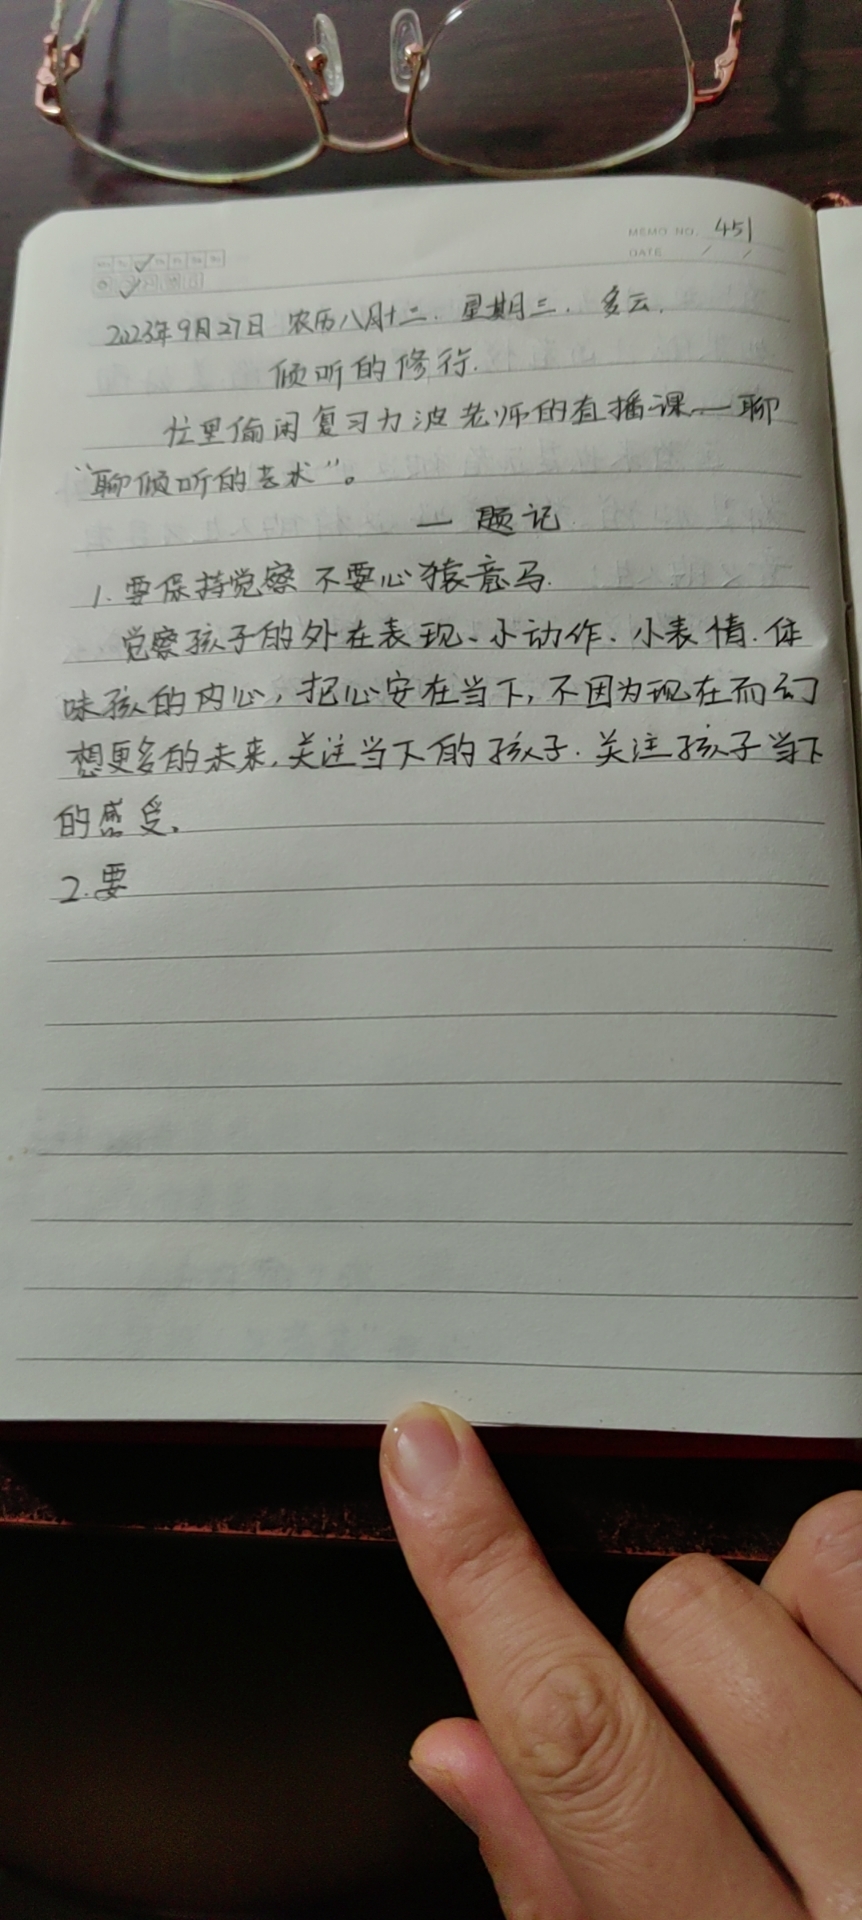 MEMO NO. 451
DATE / /
2023年9月27日 农历八月十二. 星期三. 多云.
倾听的修行.
忙里偷闲复习力波老师的直播课——聊
“聊倾听的艺术”。
— 题记
1.要保持觉察 不要心猿意马.
觉察孩子的外在表现、小动作、小表情.体
味孩的内心,把心安在当下,不因为现在而幻
想更多的未来,关注当下的孩子.关注孩子当下
的感受.
2.要